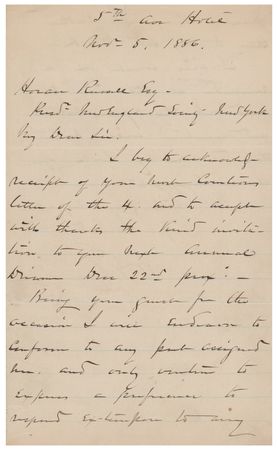 5th Ave Hotel
Novr 5. 1886.
Horace Russell Esq -
Presdt New England Society New York
My Dear Sir.
I beg to acknowledge
receipt of your most Courteous
letter of the 4. and to accept
with thanks the Kind invita-
tion, to your next Annual
Dinner Decr 22nd prox: -
Being your guest for the
occasion I will endeavor to
conform to any part assigned
me. and only venture to
express a preference to
respond extempore to any